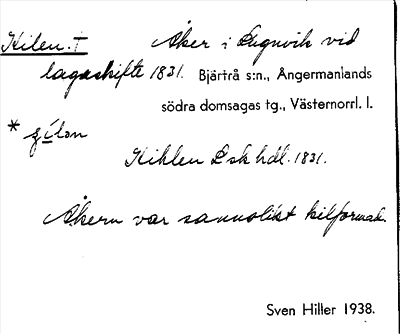 Kilen. † Åker i Lugnvik vid
lagaskifte 1831. Bjärtrå s:n., Ångermanlands
södra domsagas tg., Västernorrl. l.
*
Kihlen Lsk hdl. 1831.
Åkern var sannolikt kilformad.
Sven Hiller 1938.